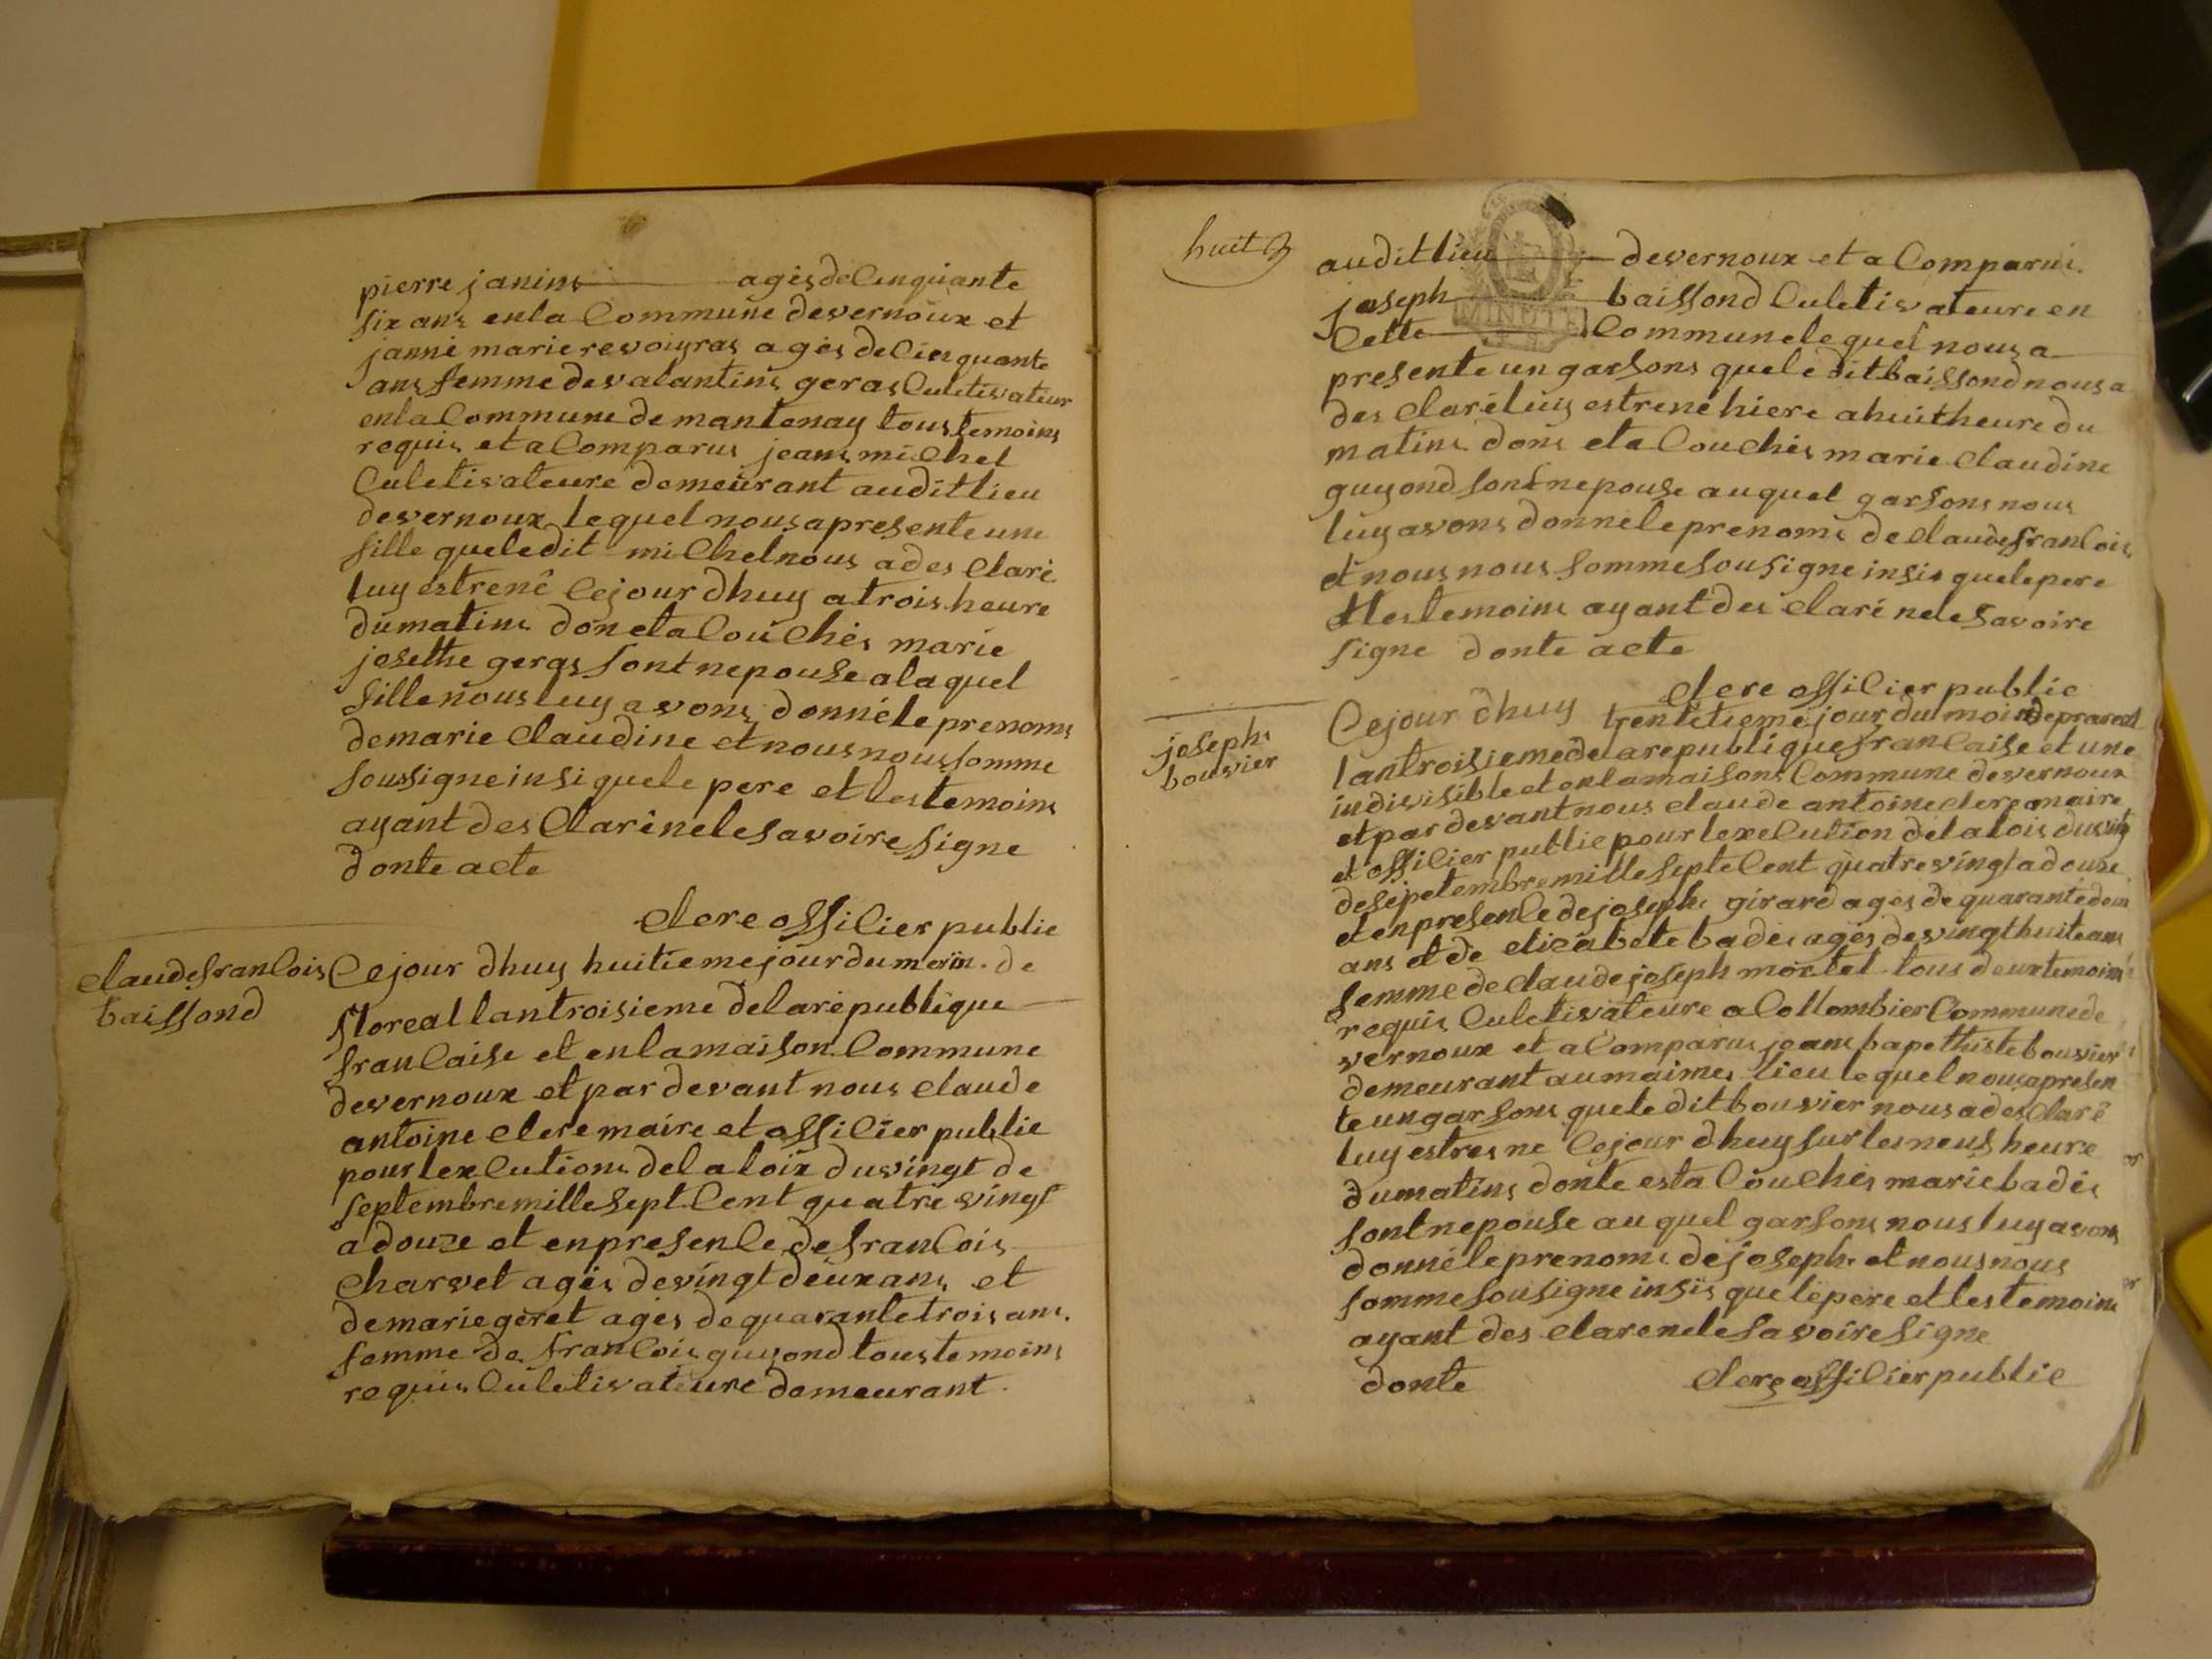 pierre janins agés de Cinquante
six ans en la Commune de vernoux et
janne marie revoiyras agés de Cinquante
ans femme de valantins geras Culetivateur
en la Commune de mantenay tous temoins
requis et a Comparus jeans miChel
Culetivateure demeurant audit lieu
de vernoux lequel nous a presente une
fille que ledit miChel nous a des Claré
luy estre né Ce jour dhuy a trois heure
du matins don et a CouChés marie
josethe geras sont nepouse a la quel
fille nous luy avons donné le prenoms
de marie Claudine et nous nous somme
soussigne insi que le pere et les temoins
ayant des Claré ne le savoire signe
donte acte
Clere offiCier public
Claude franCois
baissond
Ce jour dhuy huitieme jour du moin de
floreal lan troisieme de la republique
franCaise et en la maison Commune
de vernoux et par devant nous Claude
antoine Clere maire et offiCier public
pour lexCutions de la loix du vingt de
septembre mille sept Cent quatre vingt
a douze et en presenCe de franCois
Charvet agés de vingt deux ans et
de marie geret agés de quarante trois ans
femme de franCois guyond tous temoins
requis Culetivateure demeurant
huit
audit lieu de vernoux et a Comparui
joseph baissond Culetivateure en
Cette Commune le quel nous a
presente un garsons que le dit baissond nous a
des Claré luy estre né hiere a huit heure du
matins dons et a CouChés marie Claudine
guyond sont nepouse au quel garsons nous
luy avons donné le prenoms de Claude franCois
et nous nous somme sousigne insis que le pere
et les temoins ayant des Claré ne le savoire
signe donte acte
Clere offiCier public
joseph
bouvier
Ce jour dhuy trentetieme jour du mois de prareal
lan troisieme de la republique franCaise et une
indivisible et en la maisons Commune de vernoux
et par devant nous Claude antoine Clere maire
et offiCier public pour lexeCution de la lois du vingt
de sepetembre mille septe Cent quatre vingt a douze
et en presenCe de joseph girard agés de quarante deux
ans et de elizabete badés agés de vingt huite ans
femme de Claude joseph mortel tous deux temoins
requis Culetivateure a Collombier Commune de
vernoux et a Comparus jeans bapethiste bouvier
demeurant au maimes lieu le quel nous a presen
te un garsons que le dit bouvier nous a des Claré
luy estres ne Ce jour dhuy sur les neuf heure
du matins donte est a CouChés marie badés
sont nepouse au quel garsons nous luy avons
donné le prenoms de joseph et nous nous
somme sousigne insis que le pere et les temoins
ayant des Claré ne le savoire signe
donte Clere offiCier public
MINUTE